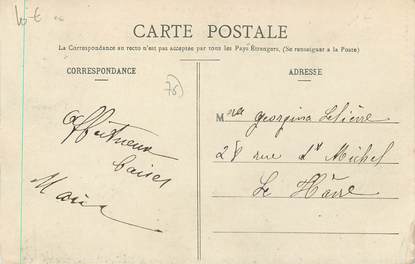 10 €
CARTE POSTALE
La Correspondance au recto n'est pas acceptée par tous les Pays Étrangers, (Se renseigner à la Poste)
CORRESPONDANCE
ADRESSE
76)
Affectueux
baiser
Maria
Georgina Lelièvre
28 rue St Michel
Le Hâvre